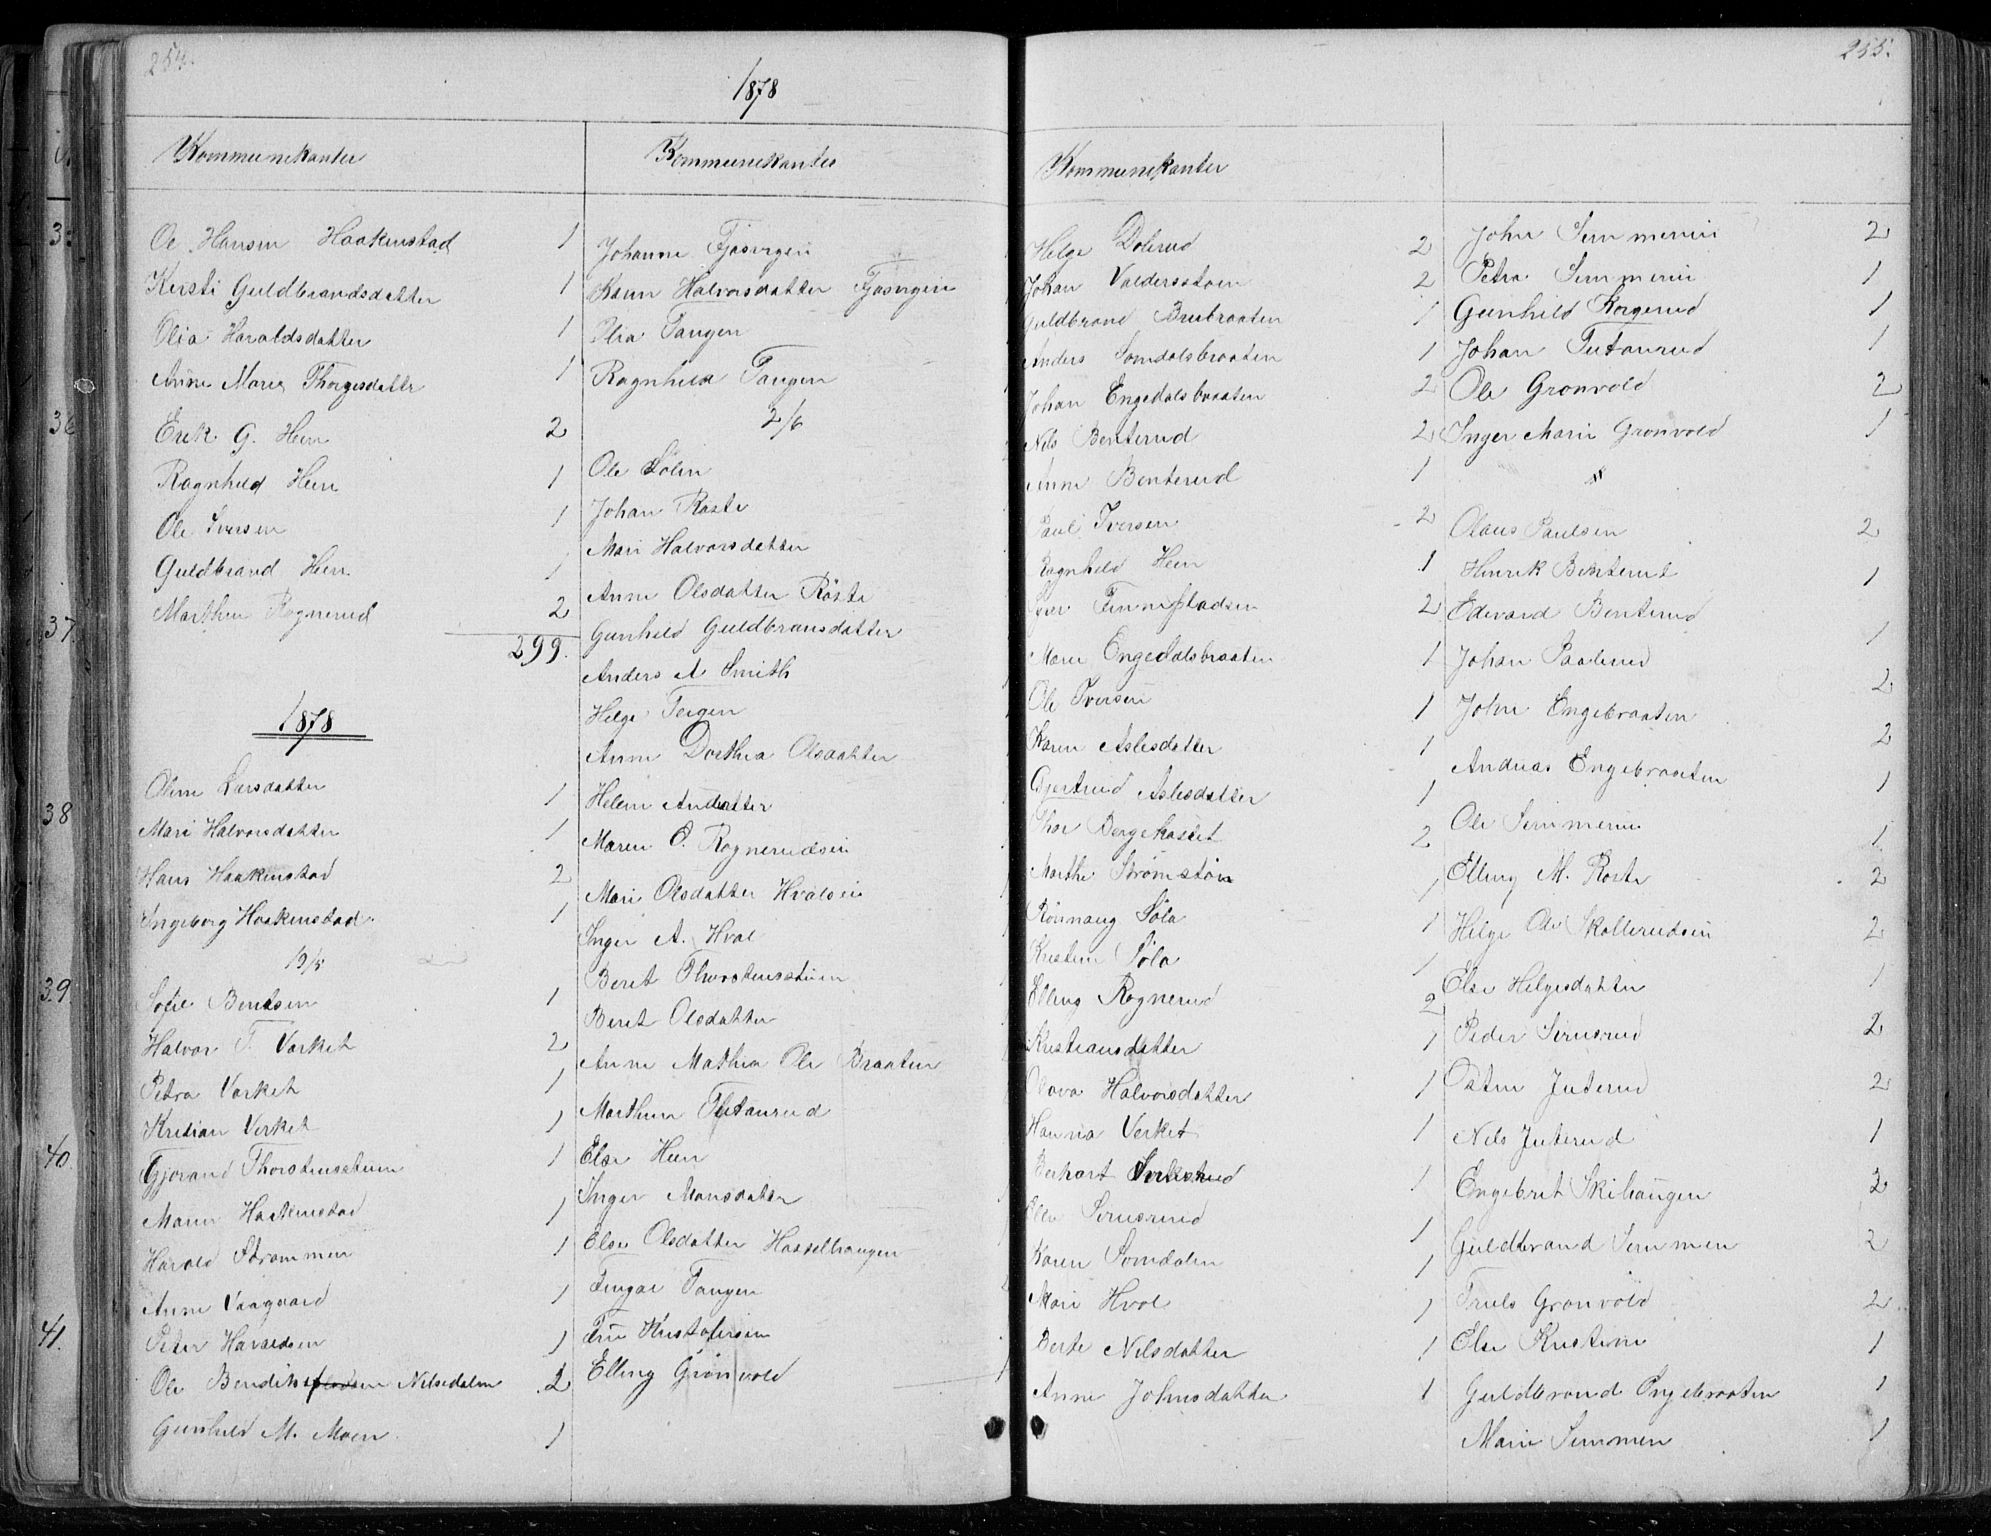 254.
1878
Kommunikanter
Ole Hansen Haakenstad 1
Kersti Guldbrandsdatter 1
Olia Haraldsdatter 1
Anne Marie Thorgesdatter 1
Erik G. Hein 2
Ragnhild Hein 1
Ole Iversen 1
Guldbrand Hein 1
Marthea Rognerud 2
299.
1878
Oline Larsdatter 1
Mari Halvorsdatter 1
Hans Haakenstad 2
Ingeborg Haakenstad 1
19/5
Sofie Bentsen 1
Halvor T. Verket 2
Petra Verket 1
Kristian Verket 1
Gjorand Thorstensstuen 1
Maren Haakenstad 1
Harald Strømmen 1
Anne Vaagaard 1
Peter Haraldsen 1
Ole Bendik Nilsedalen 2
Gunhild M. Moen 1
Kommunikanter
Johanne Fjøsvigen
Karen Halvorsdatter Fjøsvigen
Olia Tangen
Ragnhild Tangen
2/6
Ole Sølen
Johan Røste
Mari Halvorsdatter
Anne Olsdatter Røste
Gunhild Guldbransdatter
Anders A Smith
Helge Teigen
Anne Dorthea Olsdatter
Helene Andsdatter
Maren O. Rognerudseie
Mari Olsdatter Hvalseie
Inger A. Hval
Berit Thorstensstuen
Beret Olsdatter
Anne Mathea Ole Braaten
Marthea Tutanrud
Else Hein
Inger Monsdatter
Else Olsdatter Hasselhaugen
Fingal Tangen
Fru Kristofersen
Elling Grønvold
255.
Kommunikanter
Helge Dolerud 2
Johan Valdersstøen 2
Guldbrand Brubraaten 1
Anders Somdalsbraaten 1
Johan Engedalsbraaten 2
Nils Benterud 2
Anne Benterud 1
Paul Iversen 2
Ragnhild Hein 1
Iver Finnepladsen 2
Maren Engedalsbraaten 1
Ole Iversen 1
Karen Aslesdatter 1
Gjertrud Aslesdatter 1
Thor Bergekastet 2
Marthe Strømstøen 1
Rønnaug Søla 1
Kristen Søla 1
Elling Rognerud 2
Kristiansdatter 1
Olava Halvorsdatter 1
Hanna Verket 1
Berhart 1
Else Sirusrud 1
Karen Somdalen 1
Mari Hval 1
Berte Nilsdatter 1
Anne Johnsdatter 1
John Simmenn 2
Petra Simmenn 1
Gunhild Korgerud 1
Johan Tutanrud 1
Ole Grønvold 2
Inger Marie Grønvold 1
Olaus Paulsen 2
Henrik Benterud 1
Edevard Benterud
Johan Paalerud 1
John Engebraaten 2
Andreas Engebraaten 2
Ole Simmenn 1
Elling M. Røste 1
Helge Ole Skollerudseie 2
Else Helgesdatter 2
Peder Sirusrud 1
Østen Juterud 2
Nils Juterud 2
Engebrit Skihaugen 1
Guldbrand Simmen 2
Truls Grønvold 2
Else Kristine 2
Guldbrand Engebraaten 1
Marie Simmen 1
1
3
36
37.
38
39.
40.
41.